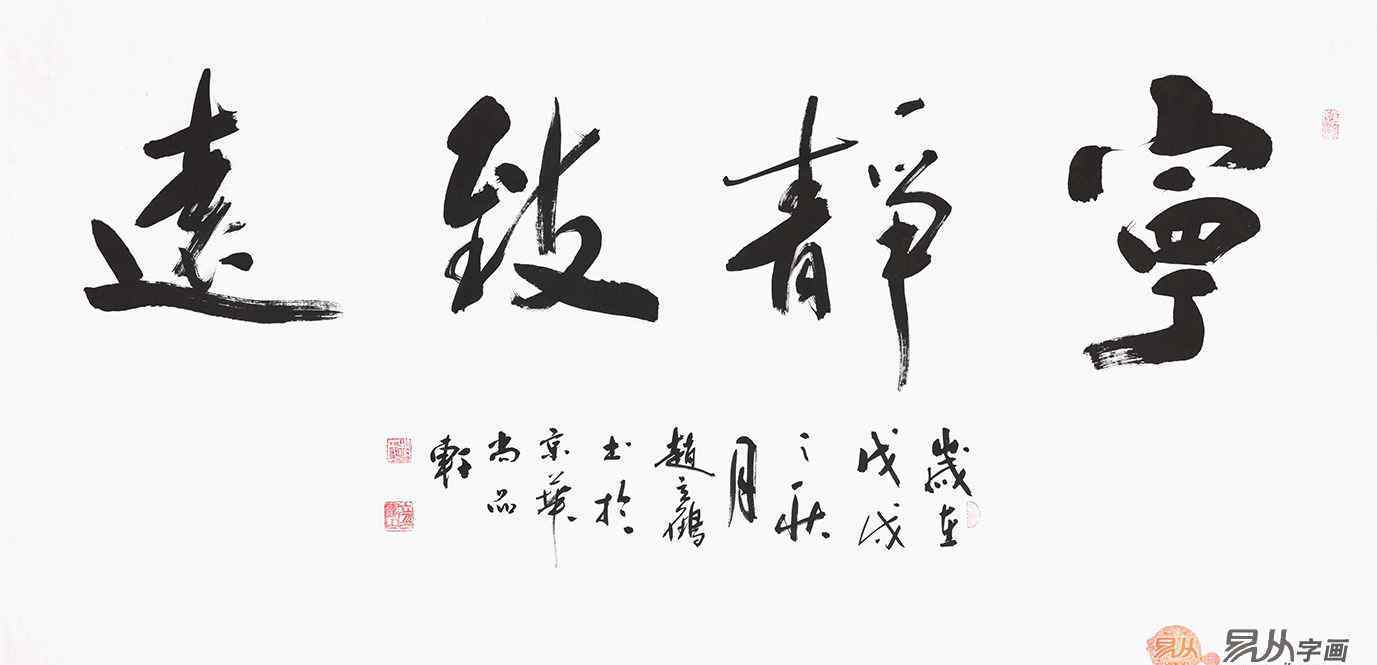 寧靜致遠
歲在
戊戌
之秋
月
趙云鶴
书於
京華
尚品
軒
易从字画